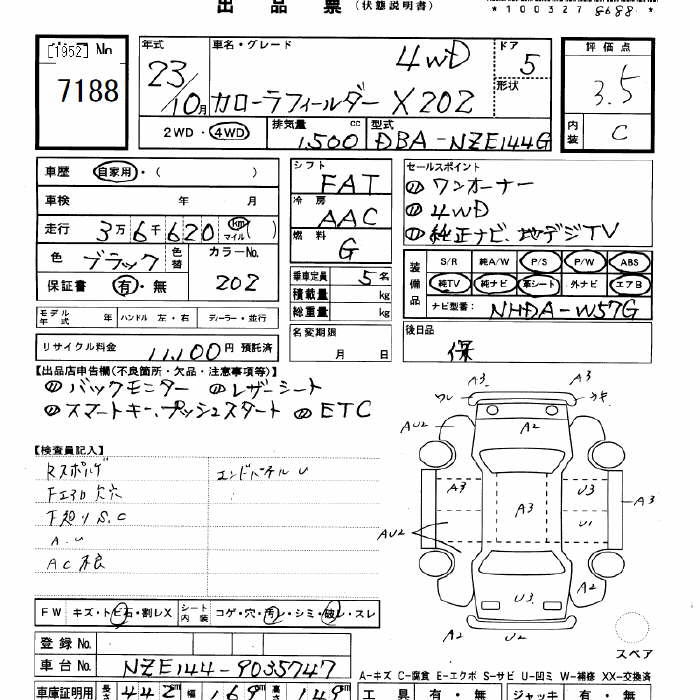 出品票(状態説明書)
*100327 8688*
[1952] No 7188
年式 23/10月
車名・グレード 4WD カローラフィールダー X202
ドア 5 形状
評価点 3.5
内装 C
2WD・4WD 排気量 1,500 cc 型式 DBA-NZE144G
車歴 自家用・( )
車検 年 月
走行 3万6千620 km マイル( )
色 ブラック 色替 カラーNo. 202
保証書 有・無
シフト FAT
冷房 AAC
燃料 G
乗車定員 5名
積載量 kg
総重量 kg
セールスポイント
① ワンオーナー
② 4WD
③ 純正ナビ、地デジTV
装備品 S/R 純A/W P/S P/W ABS
純TV 純ナビ 革シート 外ナビ エアB
ナビ型番: NHDA-W57G
モデル年式 年 ハンドル 左・右 ディーラー・並行
リサイクル料金 11,100円 預託済
名変期限 月 日
後日品 保
【出品店申告欄(不良箇所・欠品・注意事項等)】
バックモニター レザーシート
スマートキー、プッシュスタート ETC
【検査員記入】
エンドパネル U
下廻り S.C
A.U
FW キズ・トビ石・割レX シート内装 コゲ・穴・汚レ・シミ・破レ・スレ
登録No.
車台No. NZE144-9035747
車庫証明用 長さ 442cm 幅 169cm 高さ 149cm
A3 A3
AU2 A2
A3 A3 U3 A3
U1
AU2
U3 A2
A2 U2
スペア
A-キズ C-腐食 E-エクボ S-サビ U-凹ミ W-補修 XX-交換済
工具 有・無 ジャッキ 有・無